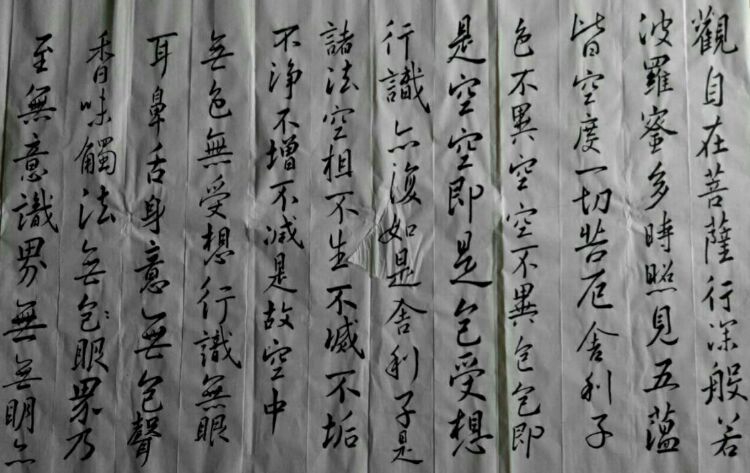 觀自在菩薩行深般若
波羅蜜多時照見五蘊
皆空度一切苦厄舍利子
色不異空空不異色色即
是空空即是色受想
行識亦復如是舍利子是
諸法空相不生不滅不垢
不净不增不减是故空中
無色無受想行識無眼
耳鼻舌身意無色聲
香味觸法無色眼界乃
至無意識界無無明亦